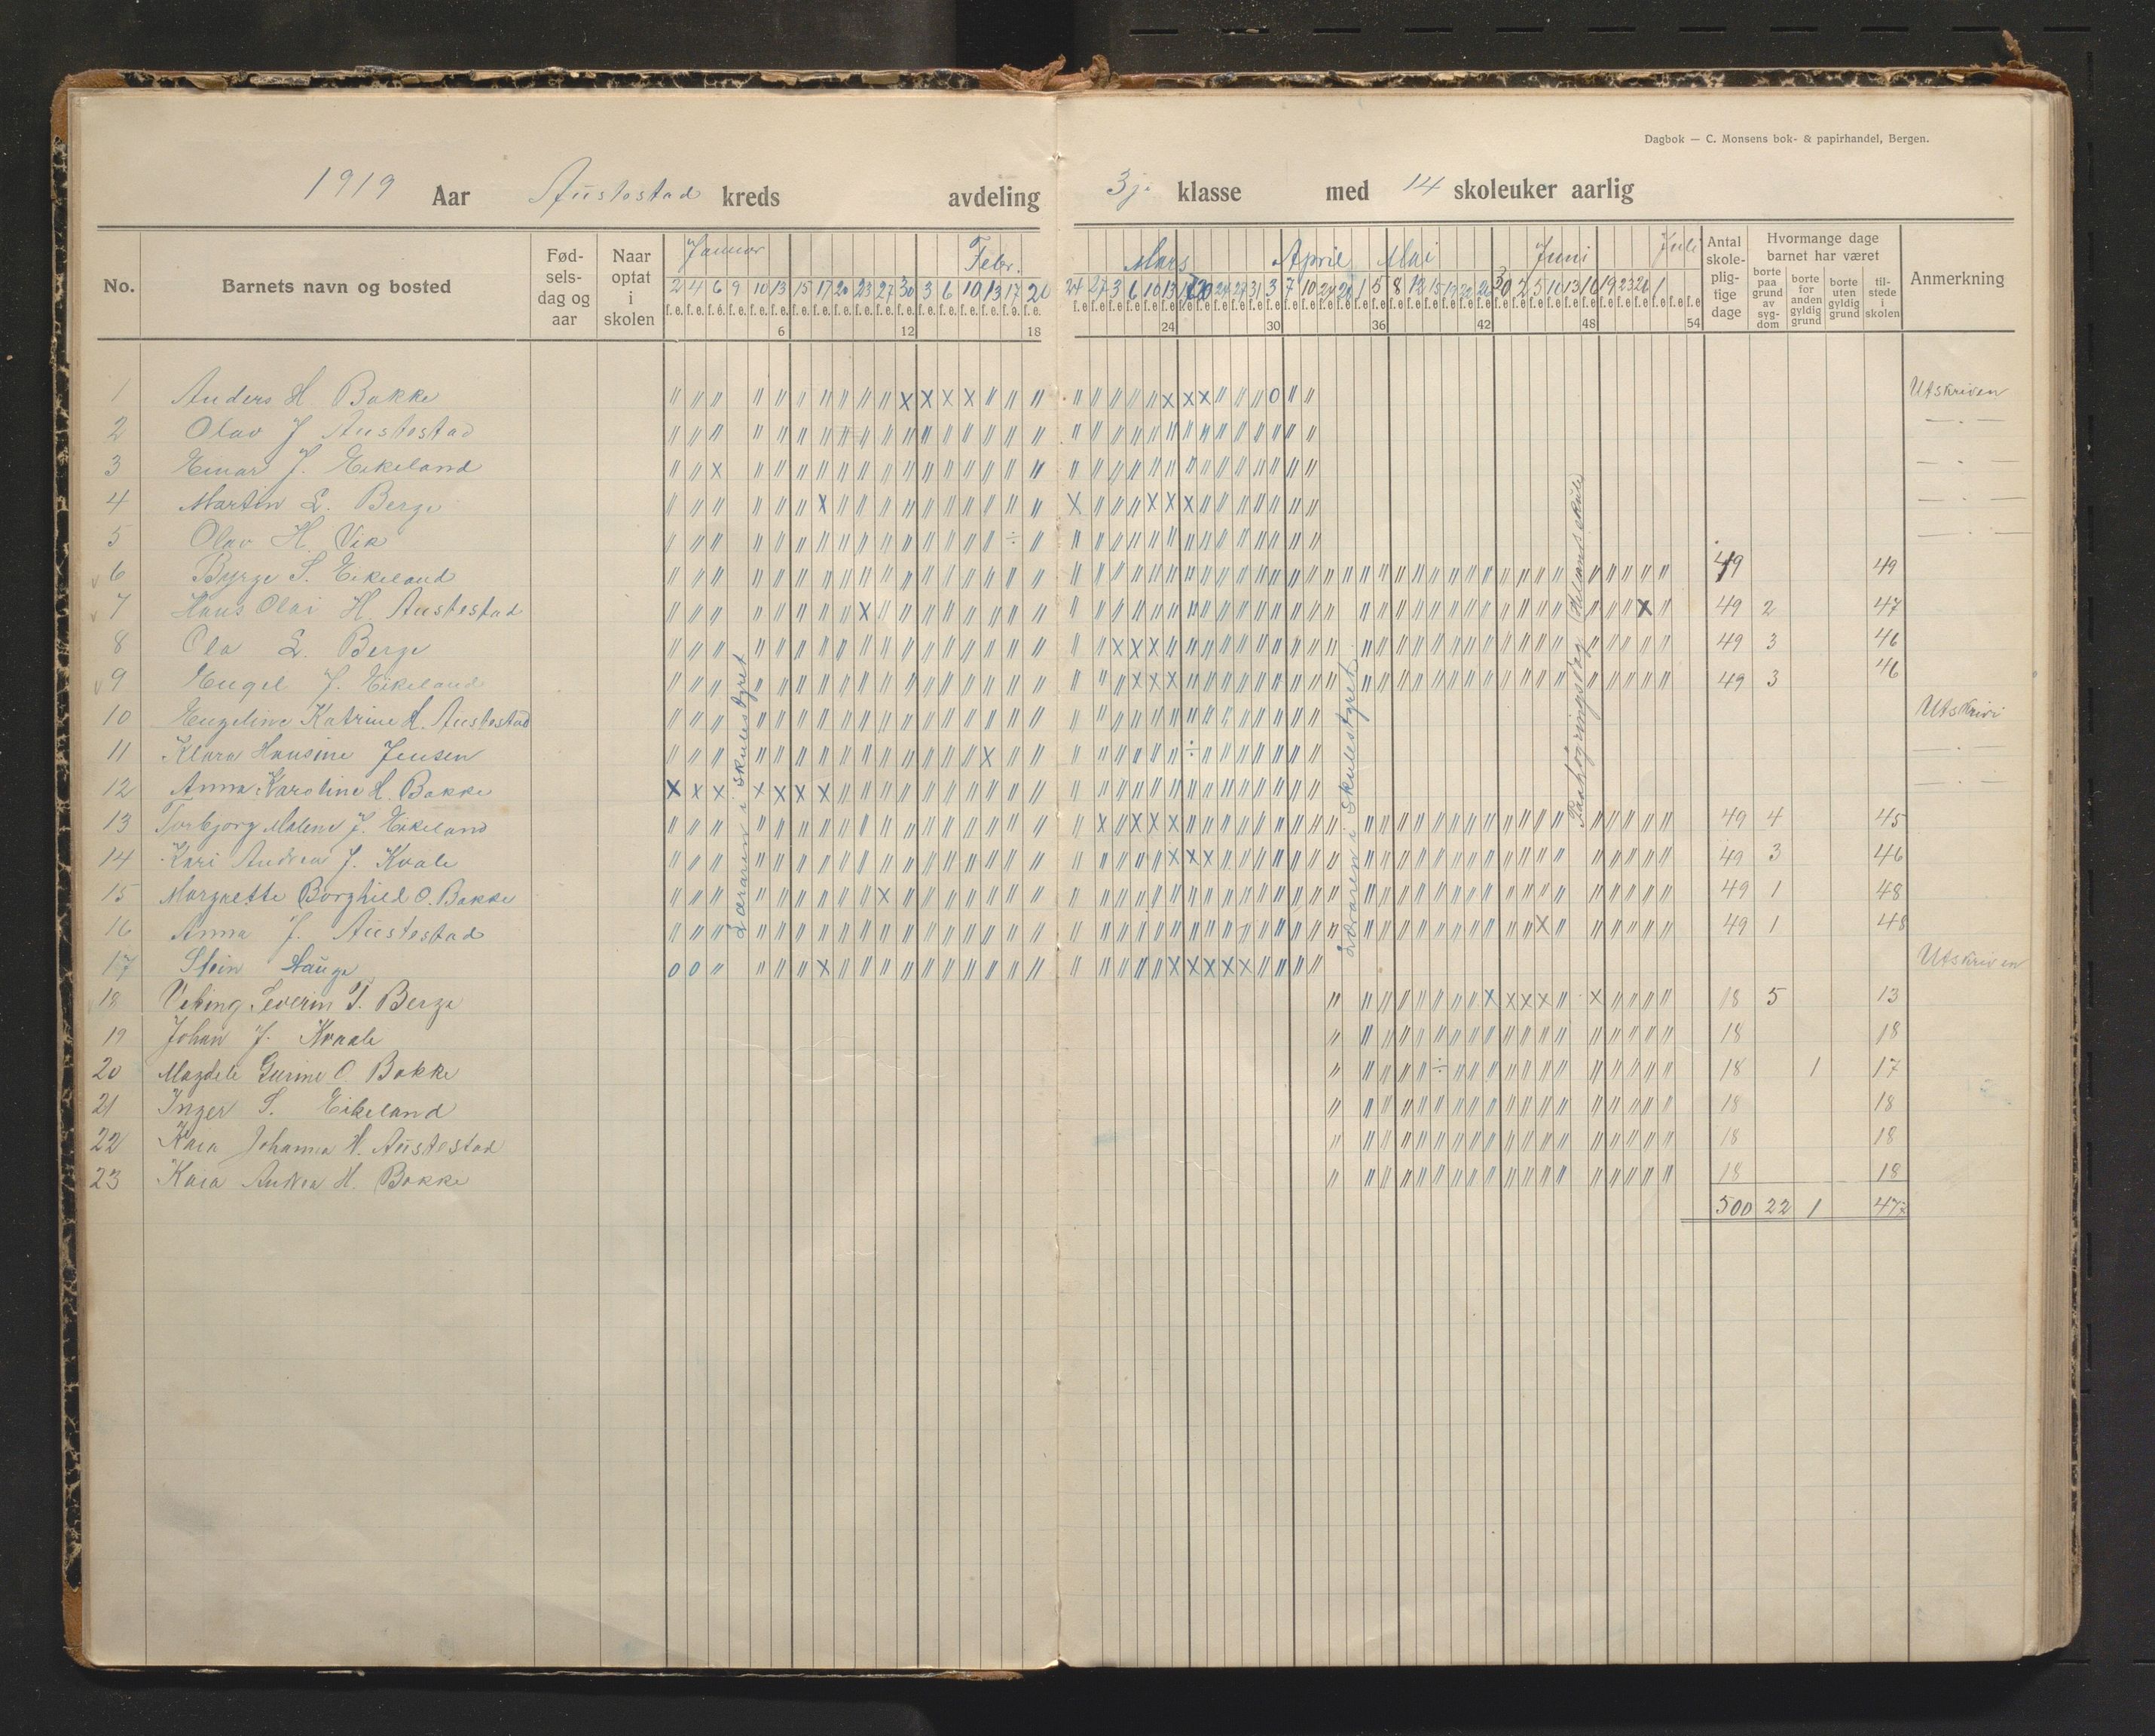 Dagbok — C. Monsens bok- & papirhandel, Bergen.
1919 Aar Austestad kreds avdeling 3je klasse med 14 skoleuker aarlig
No. Barnets navn og bosted Fød-sels-dag og aar Naar optat i skolen Januar Febr. Mars April Mai Juni Juli Antal skole-plig-tige dage Hvormange dage barnet har været Anmerkning
borte paa grund av syg-dom borte for anden gyldig grund borte uten gyldig grund til-stede i skolen
2 4 6 9 10 13 15 17 20 23 27 30 3 6 10 13 17 20 24 27 3 6 10 13 17 20 24 27 31 3 7 10 24 28 1 5 8 12 15 19 22 26 30 2 5 10 13 16 19 23 26 1
6 12 18 24 30 36 42 48 54
1 Anders H. Bakke Utskriven
2 Olav J Austestad — . —
3 Einar J. Eikeland — . —
4 Martin L. Berge — . —
5 Olav H. Vik — . —
6 Byrge S. Eikeland 49 49
7 Hans Olai H. Austestad 49 2 47
8 Ola L. Berge 49 3 46
9 Engel J. Eikeland 49 3 46
10 Engeline Katrine H. Austestad Utskrivi
11 Klara Hansine Jensen — . —
12 Anna Karoline H. Bakke — . —
13 Torbjorg Malene J. Eikeland 49 4 45
14 Kari Andrea J. Kvale 49 3 46
15 Margrette Borghild O. Bakke 49 1 48
16 Anna J. Austestad 49 1 48
17 Stein Hauge Utskriven
18 Viking Severin T. Berge 18 5 13
19 Johan J. Kvale 18 18
20 Magdele Gurine O Bakke 18 1 17
21 Inger S. Eikeland 18 18
22 Kaia Johanna H. Austestad 18 18
23 Kaia Andrea H. Bakke 18 18
500 22 1 477
Læraren i skulestyret
Læraren i skulestyret
Paahøgringsdag Helland skule